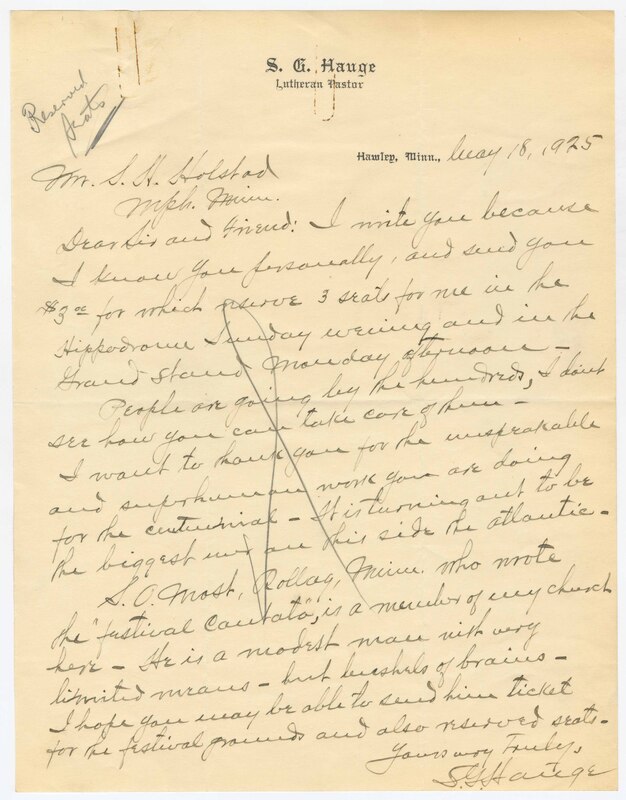 S. G. Hauge
Lutheran Pastor
Reserved
Seats
Hawley, Minn., May 18, 1925
Mr. S. H. Holstad
Mph. Minn.
Dear Sir and Friend: I write you because
I know you personally, and send you
$3 00 for which reserve 3 seats for me in the
Hippodrome Sunday evening and in the
Grand Stand Monday afternoon –
People are going by the hundreds, I don't
see how you can take care of them –
I want to thank you for the unspeakable
and superhuman work you are doing
for the centennial – It is turning out to be
the biggest ever on this side the atlantic –
S. O. Most, Rollag, Minn. who wrote
the "festival Cantata", is a member of my church
here – He is a modest man with very
limited means – but bushels of brains –
I hope you may be able to send him ticket
for the festival grounds and also reserved seats –
Yours very Truly,
S. G. Hauge